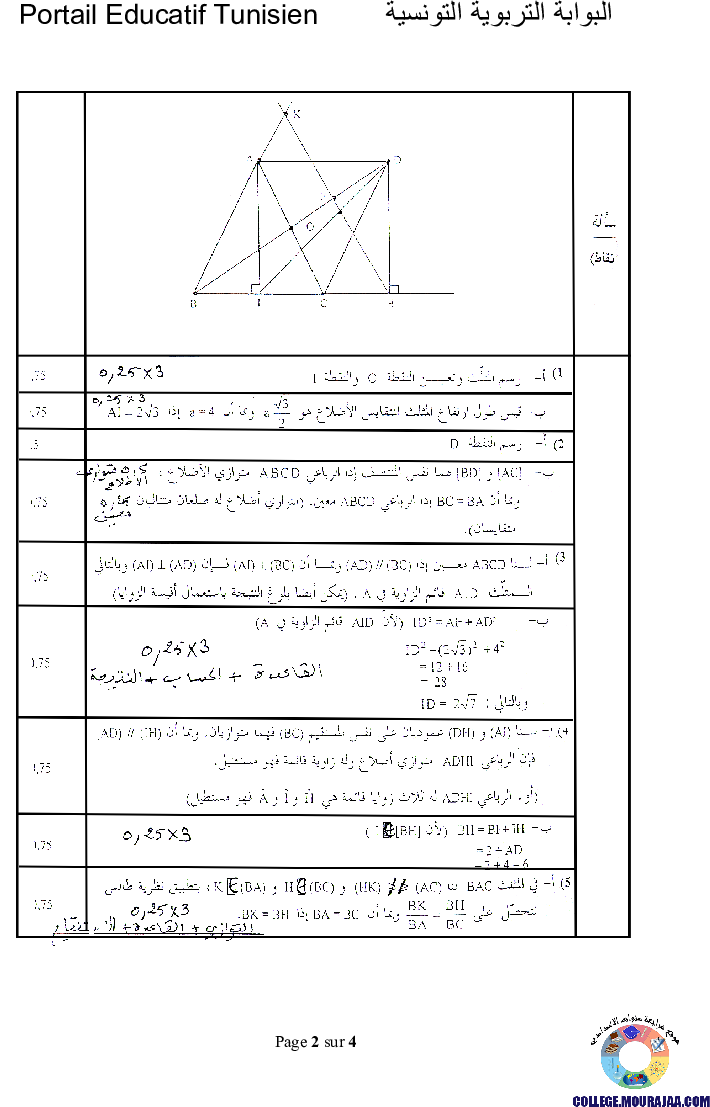 Portail Educatif Tunisien البوابة التربوية التونسية
K
D
O
B
مسألة
نقاط)
0,25×3
1) أ- رسم المثلث وتعيين النقطة O والنقطة I
0,25×3
ب- قيس طول ارتفاع المثلث المتقايس الأضلاع هو a √3/2 وبما أن a = 4 إذا AI = 2√3
2) أ- رسم النقطة D
ب- [AC] و [BD] لهما نفس المنتصف إذا الرباعي ABCD متوازي الأضلاع :
وبما أن BC = BA إذا الرباعي ABCD معين. (متوازي أضلاع له ضلعان متتاليان
متقايسان).
3) أ- لدينا ABCD معين إذا (BC) // (AD) وبما أن (BC) ⊥ (AI) فإن (AD) ⊥ (AI) وبالتالي
المثلث AID قائم الزاوية في A . (يمكن أيضا بلوغ النتيجة باستعمال أقيسة الزوايا)
ب- ID² = AI² + AD² (لأن AID قائم الزاوية في A)
0,25×3
ID² = (2√3)² + 4²
= 12 + 16
القاعدة + الحساب + النتيجة
= 28
وبالتالي : ID = 2√7
4) أ- لدينا (AI) و (DH) عموديان على نفس المستقيم (BC) فهما متوازيان. وبما أن (IH) // (AD)
فإن الرباعي ADHI متوازي أضلاع وله زاوية قائمة فهو مستطيل.
(أو. الرباعي ADHI له ثلاث زوايا قائمة هي Ĥ و Î و Â فهو مستطيل)
0,25×3
ب- BH = BI + IH (لأن I ∈ [BH])
= 2 + AD
= 2 + 4 = 6
5) أ- في المثلث BAC لنا (AC) // (HK) و H ∈ (BC) و K ∈ (BA) ؛ بتطبيق نظرية طالس
نتحصل على BK/BA = BH/BC وبما أن BA = BC إذا BK = BH.
0,25×3
التوازي + القاعدة +
Page 2 sur 4
موقع مراجعة
COLLEGE.MOURAJAA.COM